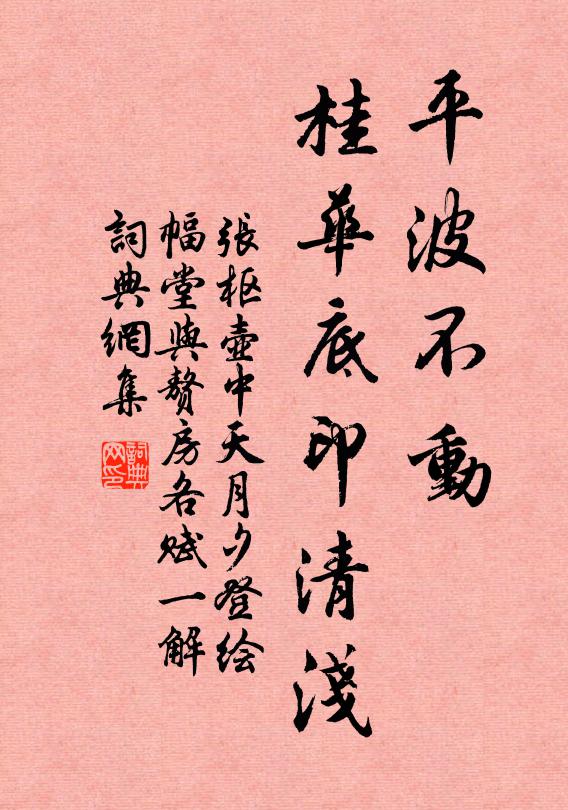 平波不動
桂華底印清淺
張枢壺中天月夕登绘
幅堂與贅房各赋一解
詞典網集
詞典网印